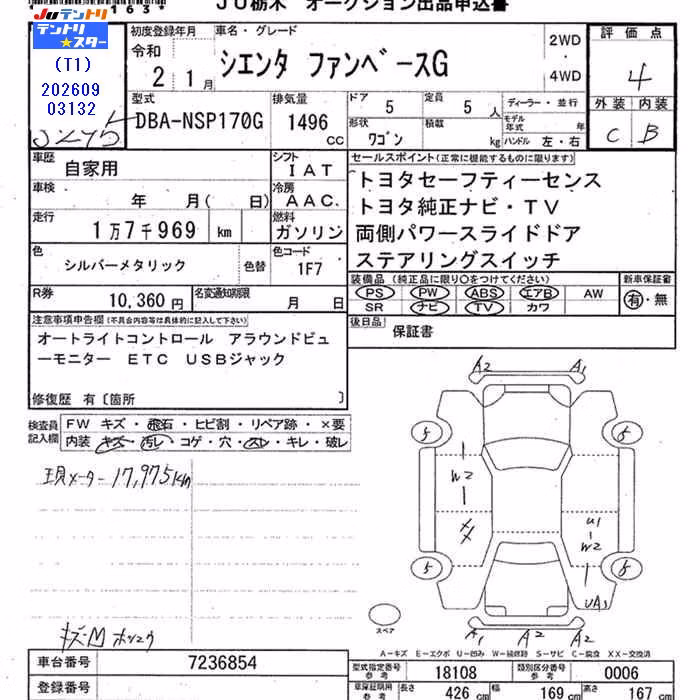 * 163*
JU栃木 オークション出品申込書
JUテントリ
テントリ★スター
(T1)
202609
03132
初度登録年月
令和
2 1月
車名・グレード
シエンタ ファンベースG
2WD
・
4WD
評価点
4
外装 内装
C B
型式
DBA-NSP170G
排気量
1496
cc
ドア
5
定員
5 人
形状
ワゴン
積載
kg
ディーラー・並行
モデル年式 年
ハンドル 左・右
車歴
自家用
シフト
IAT
車検
年 月( 日)
冷房
AAC.
走行
1万7千969 km
燃料
ガソリン
色
シルバーメタリック
色替
色コード
1F7
R券
10,360円
名変通知期限
月 日
セールスポイント(正常に機能するものに限ります)
トヨタセーフティーセンス
トヨタ純正ナビ・TV
両側パワースライドドア
ステアリングスイッチ
装備品 (純正品に限り○をつけてください)
PS PW ABS エアB AW
SR ナビ TV カワ
新車保証書
有・無
後日品
保証書
注意事項申告欄(不具合内容等は具体的に記入して下さい)
オートライトコントロール アラウンドビュ
ーモニター ETC USBジャック
修復歴 有〔箇所 〕
検査員
記入欄
FW キズ・飛石・ヒビ割・リペア跡・×要
内装 キズ・汚レ・コゲ・穴・スレ・キレ・破レ
現メーター 17,975km
A2 A1
5 5
W2
XX
U1
W2
5 5
UA1
A1 A2 A2
スペア
キズM
A-キズ E-エクボ U-凹み W-補修跡 S-サビ C-腐食 XX-交換済
車台番号
7236854
登録番号
型式指定番号
参考
18108
類別区分番号
参考
0006
車庫証明用
参考
長さ
426 cm
幅
169 cm
高さ
167 cm